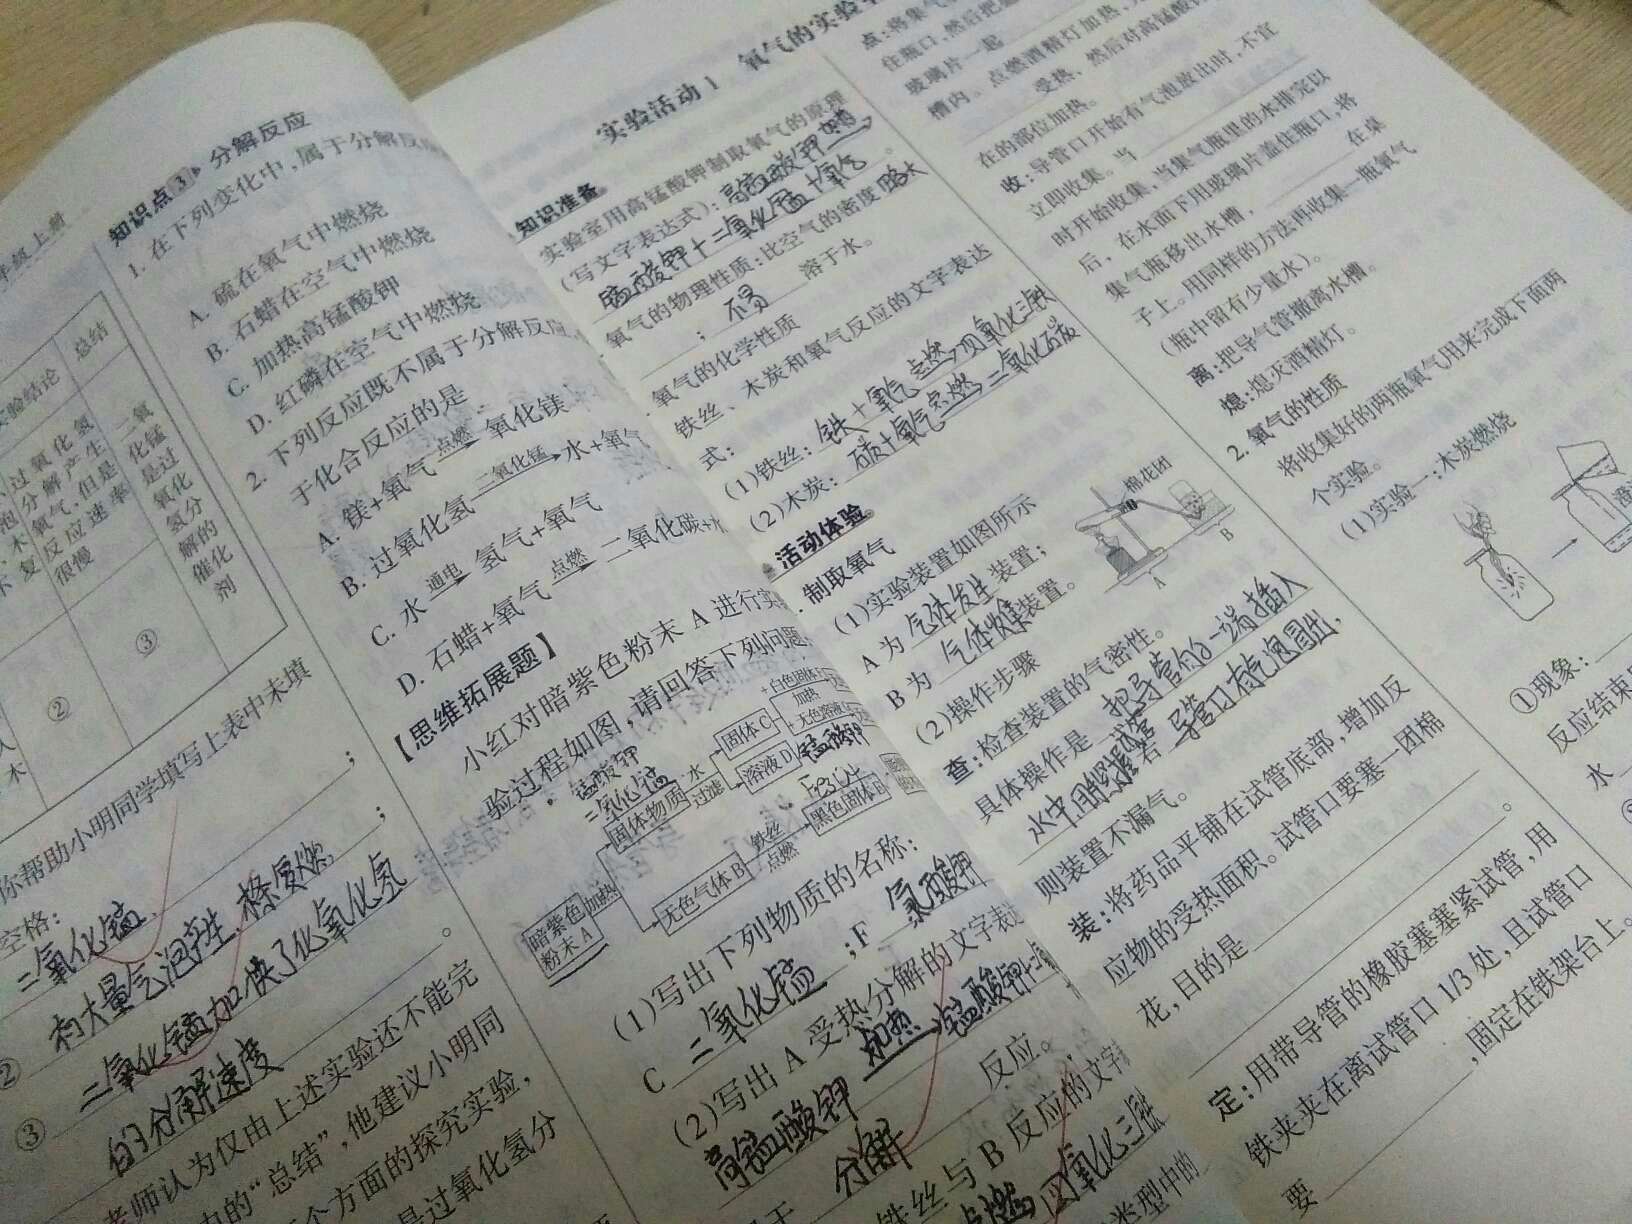 年级上册
总结
实验结论
过氧化氢
分解产生
氧气,但是
反应速率
很慢
二氧
化锰
是过
氧化
氢分
解的
催化
剂
②
③
你帮助小明同学填写上表中未填
空格:
二氧化锰
;
② 有大量气泡产生,木条复燃
;
③ 二氧化锰加快了过氧化氢
的分解速度
。
老师认为仅由上述实验还不能完
的“总结”,他建议小明同
个方面的探究实验,
是过氧化氢分
知识点3 分解反应
1. 在下列变化中,属于分解反应
A. 硫在氧气中燃烧
B. 石蜡在空气中燃烧
C. 加热高锰酸钾
D. 红磷在空气中燃烧
2. 下列反应既不属于分解反应
于化合反应的是
A. 镁+氧气 点燃 氧化镁
B. 过氧化氢 二氧化锰 水+氧气
C. 水 通电 氢气+氧气
D. 石蜡+氧气 点燃 二氧化碳+水
【思维拓展题】
小红对暗紫色粉末 A 进行实
验过程如图,请回答下列问题
锰酸钾
二氧化锰
固体物质 水 过滤 固体C 溶液D
+白色固体
加热
+无色溶液
锰酸钾
暗紫色粉末A 加热
无色气体B 铁丝 点燃 黑色固体E
(1)写出下列物质的名称:
C 二氧化锰 ;F 氯酸钾
(2)写出 A 受热分解的文字表
高锰酸钾 加热 锰酸钾+二
分解 反应。
铁丝与 B 反应的文字
点燃 四氧化三铁
类型中的
实验活动1 氧气的实验
知识准备
实验室用高锰酸钾制取氧气的原理
(写文字表达式):高锰酸钾 加热
锰酸钾+二氧化锰+氧气 。
氧气的物理性质:比空气的密度 略大
; 不易 溶于水。
氧气的化学性质
铁丝、木炭和氧气反应的文字表达
式:
(1)铁丝: 铁+氧气 点燃 四氧化三铁
(2)木炭: 碳+氧气 点燃 二氧化碳
活动体验
制取氧气
(1)实验装置如图所示
A 为 气体发生 装置;
B 为 气体收集 装置。
棉花团
A
B
(2)操作步骤
查:检查装置的气密性。
具体操作是 把导管的一端插入
水中用手握试管 若 导管口有气泡冒出,
则装置不漏气。
装:将药品平铺在试管底部,增加反
应物的受热面积。试管口要塞一团棉
花,目的是 。
定:用带导管的橡胶塞塞紧试管,用
铁夹夹在离试管口 1/3 处,且试管口
要 ,固定在铁架台上。
点:将集气
住瓶口,然后把
玻璃片一起
槽内。点燃酒精灯加热,
受热,然后对高锰酸钾
在的部位加热。
收:导管口开始有气泡放出时,不宜
立即收集。当
时开始收集,当集气瓶里的水排完以
后,在水面下用玻璃片盖住瓶口,将
集气瓶移出水槽, 在桌
子上。用同样的方法再收集一瓶氧气
(瓶中留有少量水)。
离:把导气管撤离水槽。
熄:熄灭酒精灯。
2. 氧气的性质
将收集好的两瓶氧气用来完成下面两
个实验。
(1)实验一:木炭燃烧
①现象:
反应结束
水